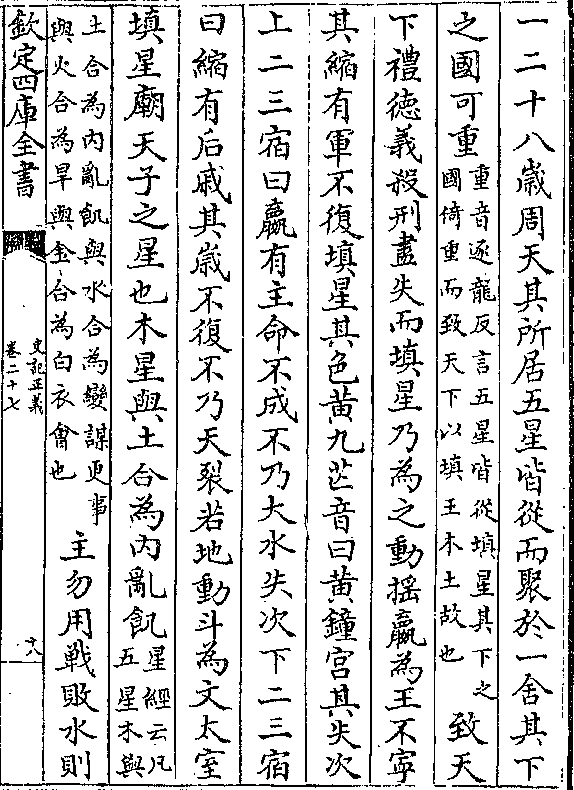 一二十八歲周天其所居五星皆從而聚於一舍其下
之國可重重音逐龍反言五星皆從填星其下之
國倚重而致天下以填王木土故也致天
下禮德義殺刑盡失而填星乃為之動揺贏為王不寧
其縮有軍不復填星其色黄九芒音曰黄鐘宫其失次
上二三宿曰贏有主命不成不乃大水失次下二三宿
曰縮有后戚其歲不復不乃天裂若地動斗為文太室
填星廟天子之星也木星與土合為内亂飢星經云凡
五星木與
土合為内亂飢與水合為變謀更事
與火合為旱與金合為白衣會也主勿用戰敗水則
欽定四庫全書
史記正義
卷二十七
十八